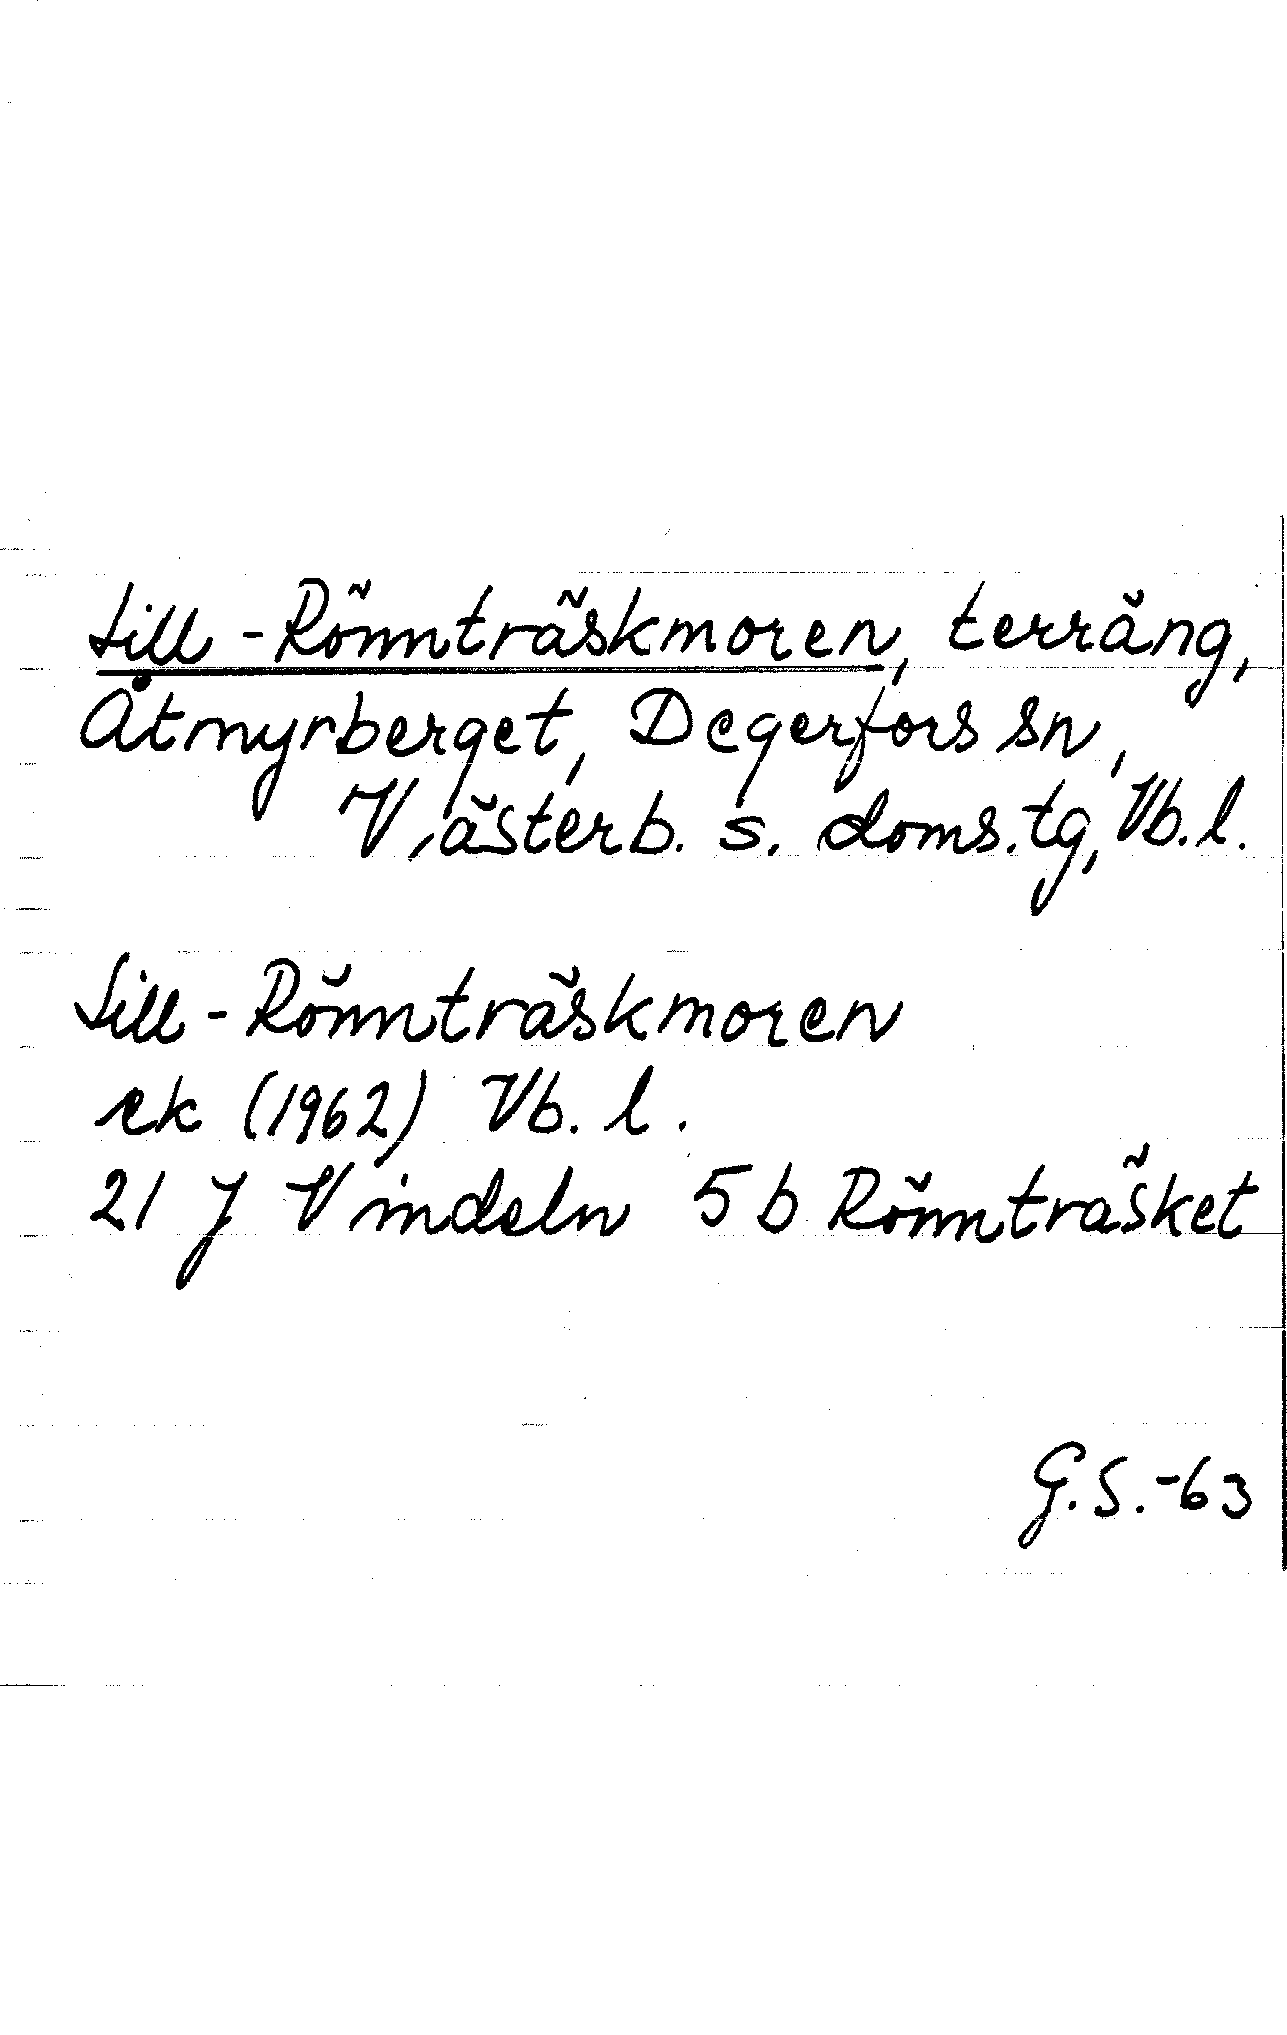 Lill-Rönnträskmoren, terräng,
Åtmyrberget, Degerfors sn,
Västerb. s. doms.tg, Vb. l.
Lill-Rönnträskmoren
ek (1962) Vb. l.
21 J Vindeln 5 b Rönnträsket
G.S.-63